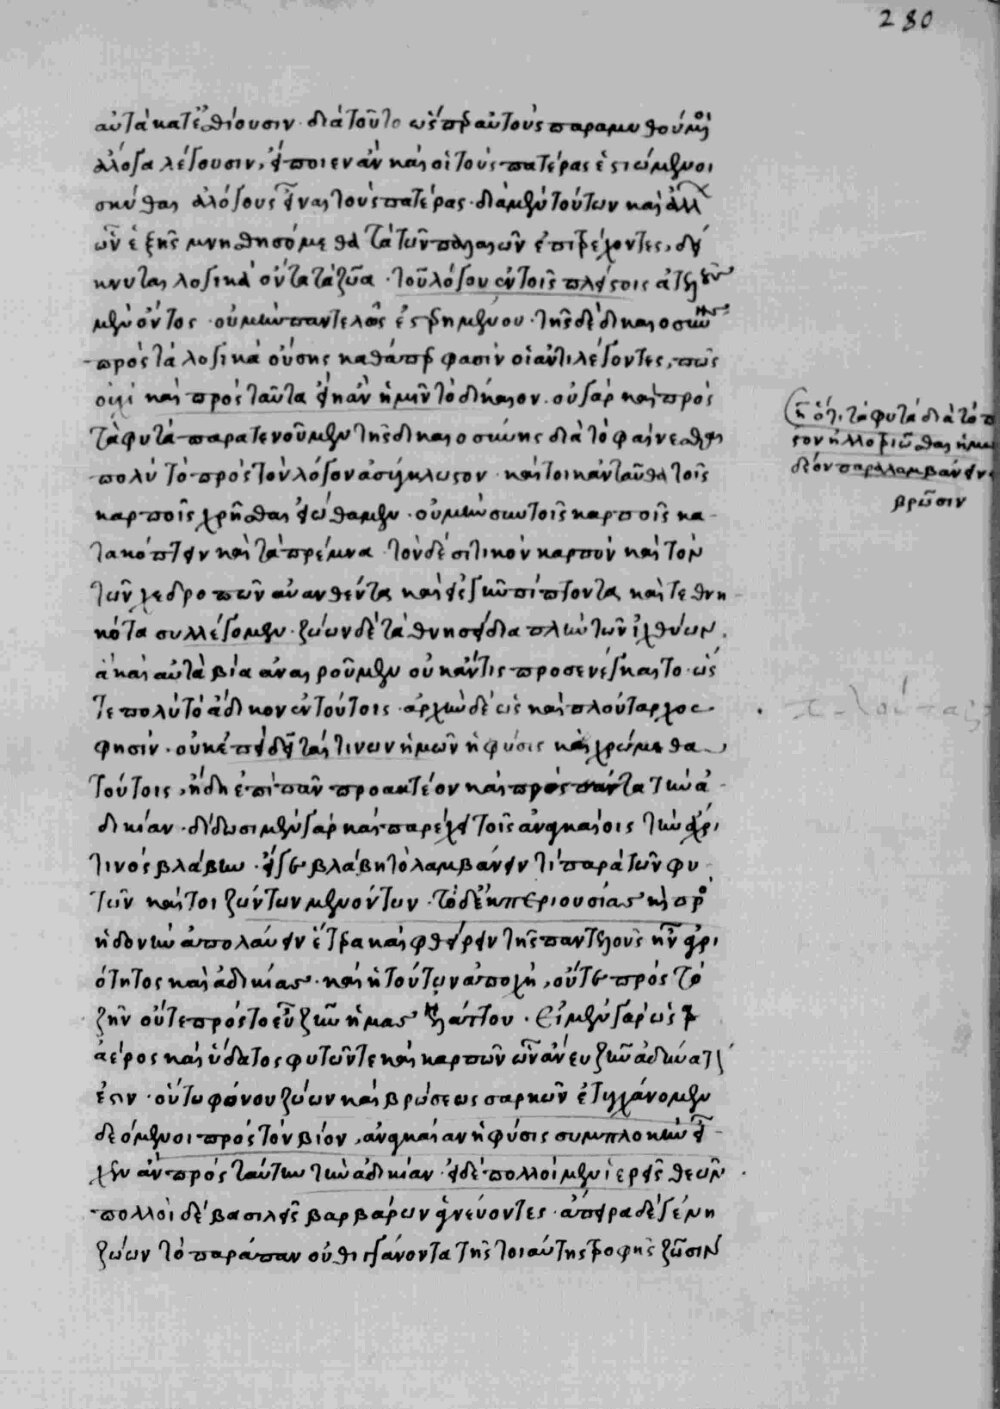 280
αὐτὰ κατεσθίουσιν· διὰ τοῦτο ὥσπερ αὐτοὺς παραμυθούμενοι
ἄλογα λέγουσιν, εἴποιεν ἂν καὶ οἱ τοὺς πατέρας ἑστιώμενοι
σκύθαι ἀλόγους εἶναι τοὺς πατέρας· διὰ μὲν τούτων καὶ ἄλλων
ὧν ἑξῆς μνησθησόμεθα τὰ τῶν παλαιῶν ἐπιτρέχοντες, δεί
κνυται λογικὰ ὄντα τὰ ζῶα· τοῦ λόγου ἐν τοῖς πλείστοις ἀτελοῦς
μὲν ὄντος· οὐ μὴν παντελῶς ἐστερημένου· τῆς δὲ δικαιοσύνης
πρὸς τὰ λογικὰ οὔσης καθάπερ φασὶν οἱ ἀντιλέγοντες, πῶς
οὐχὶ καὶ πρὸς ταῦτα εἴη ἂν ἡμῖν τὸ δίκαιον· οὐ γὰρ καὶ πρὸς
τὰ φυτὰ παρατενοῦμεν τῆς δικαιοσύνης διὰ τὸ φαίνεσθαι
πολὺ τὸ πρὸς τὸν λόγον ἀσύγκλωστον· καίτοι κἀνταῦθα τοῖς
καρποῖς χρῆσθαι εἰώθαμεν· οὐ μὴν σὺν τοῖς καρποῖς κα-
τακόπτειν καὶ τὰ πρέμνα· τὸν δὲ σιτικὸν καρπὸν καὶ τὸν
τῶν χεδροπῶν αὐανθέντα καὶ εἰς γῆν πίπτοντα καὶ τεθνη-
κότα συλλέγομεν· ζώων δὲ τὰ θνησείδια πλὴν τῶν ἰχθύων.
ἃ καὶ αὐτὰ βία ἀναιροῦμεν οὐκ ἄν τις προσενέγκαιτο· ὥς
τε πολὺ τὸ ἄδικον ἐν τούτοις· ἀρχὴν δὲ ὡς καὶ πλούταρχος
φησίν· οὐκ ἐπεὶ δεῖται τινων ἡμῶν ἡ φύσις καὶ χρώμεθα
τούτοις, ἤδη ἐπὶ πᾶν προακτέον καὶ πρὸς πάντα τὴν ἀ-
δικίαν· δίδωσι μὲν γὰρ καὶ παρέχει τοῖς ἀναγκαίοις τὴν ἄχρι
τινὸς βλάβην· εἴγε βλάβη τὸ λαμβάνειν τι παρὰ τῶν φυ-
τῶν καίτοι ζώντων μενόντων· τὸ δὲ ἐκ περιουσίας καὶ πρὸς
ἡδονὴν ἀπολαύειν ἕτερα καὶ φθείρειν τῆς παντελοῦς ἦν ἀγρι
ότητος καὶ ἀδικίας· καὶ ἡ τούτων ἀποχή, οὔτε πρὸς τὸ
ζῆν οὔτε πρὸς τὸ εὖ ζῆν ἡμᾶς ἠλάττου. Εἰ μὲν γὰρ ὡς
ἀέρος καὶ ὕδατος φυτῶν τε καὶ καρπῶν ὧν ἄνευ ζῆν ἀδύνατόν
ἐστιν· οὕτω φόνου ζώων καὶ βρώσεως σαρκῶν ἐτυγχάνομεν
δεόμενοι πρὸς τὸν βίον, ἀναγκαίαν ἡ φύσις συμπλοκὴν εἶ-
χεν ἂν πρὸς ταύτην τὴν ἀδικίαν· εἰ δὲ πολλοὶ μὲν ἱερεῖς θεῶν
πολλοὶ δὲ βασιλεῖς βαρβάρων ἁγνεύοντες· ἄπειρα δὲ γένη
ζώων τὸ παράπαν οὐ θιγγάνοντα τῆς τοιαύτης τροφῆς ζῶσιν
ὅτι τὰ φυτὰ διὰ τὸ π
δέον παραλαμβάνειν
βρῶσιν